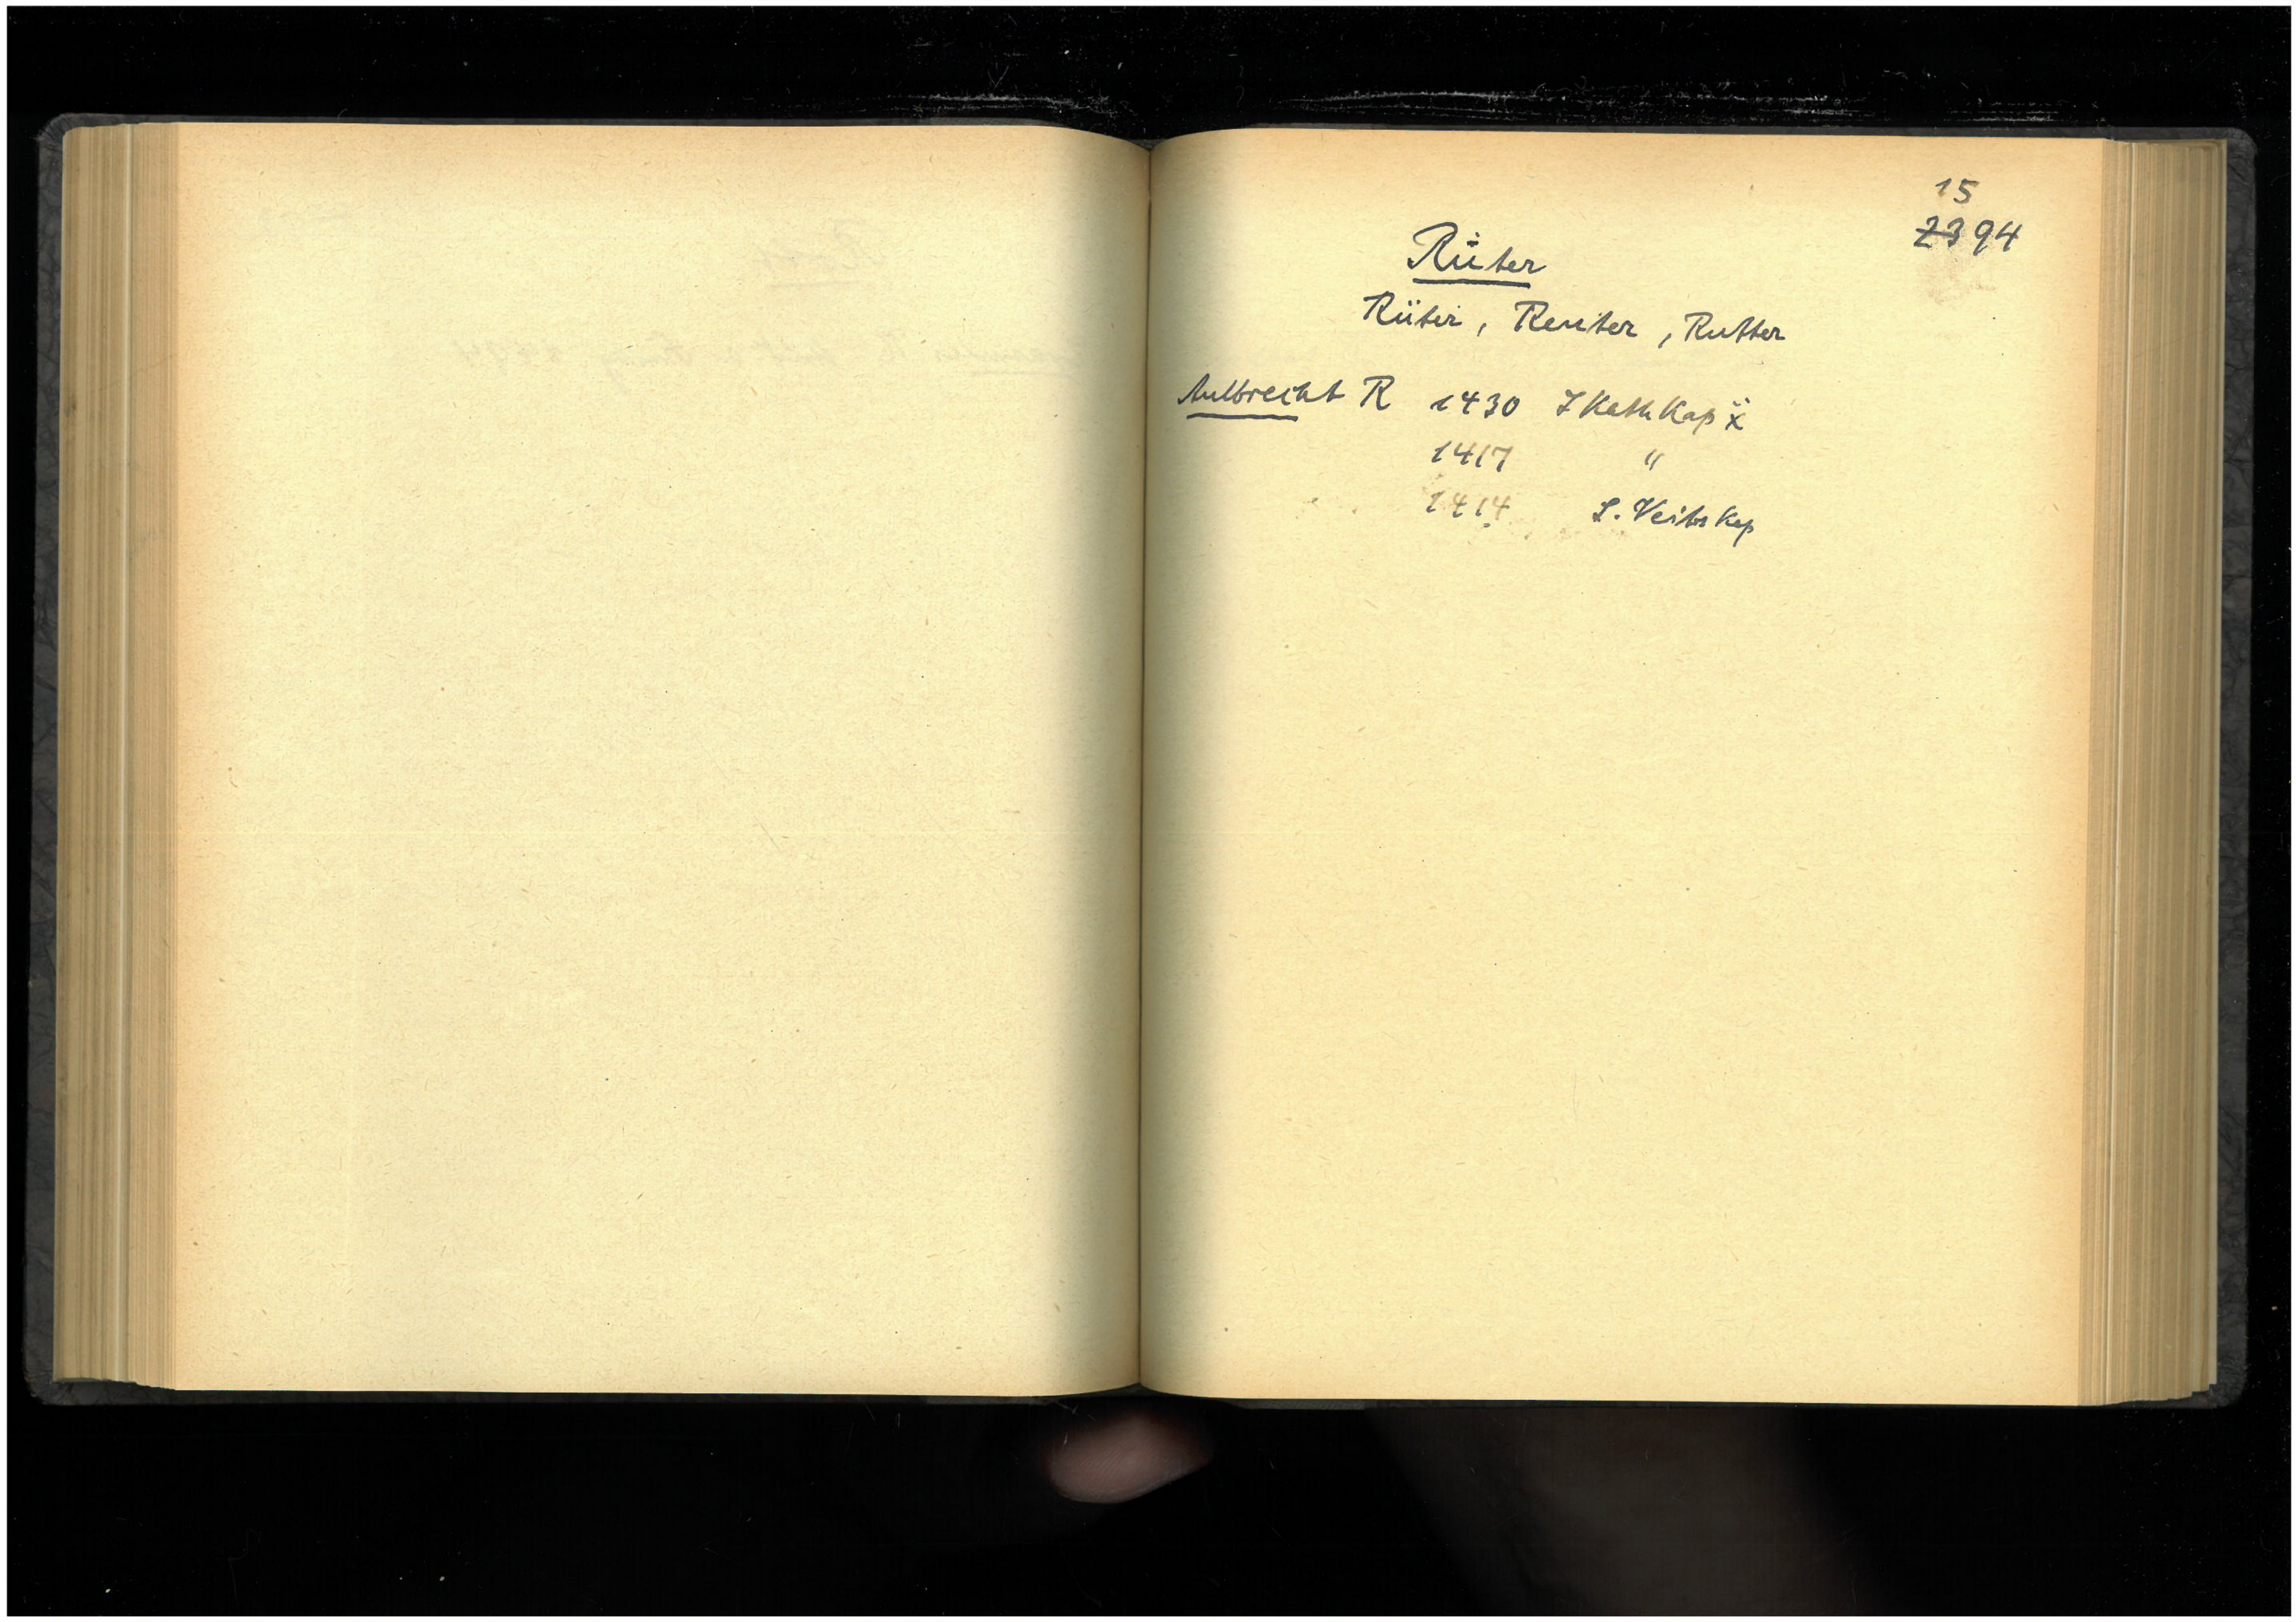 15
23 94
Rüter
Rüter, Reuter, Rutter
Aulbrecht R 1430 Kath Kap
1417 "
1414 S. Veits Kap